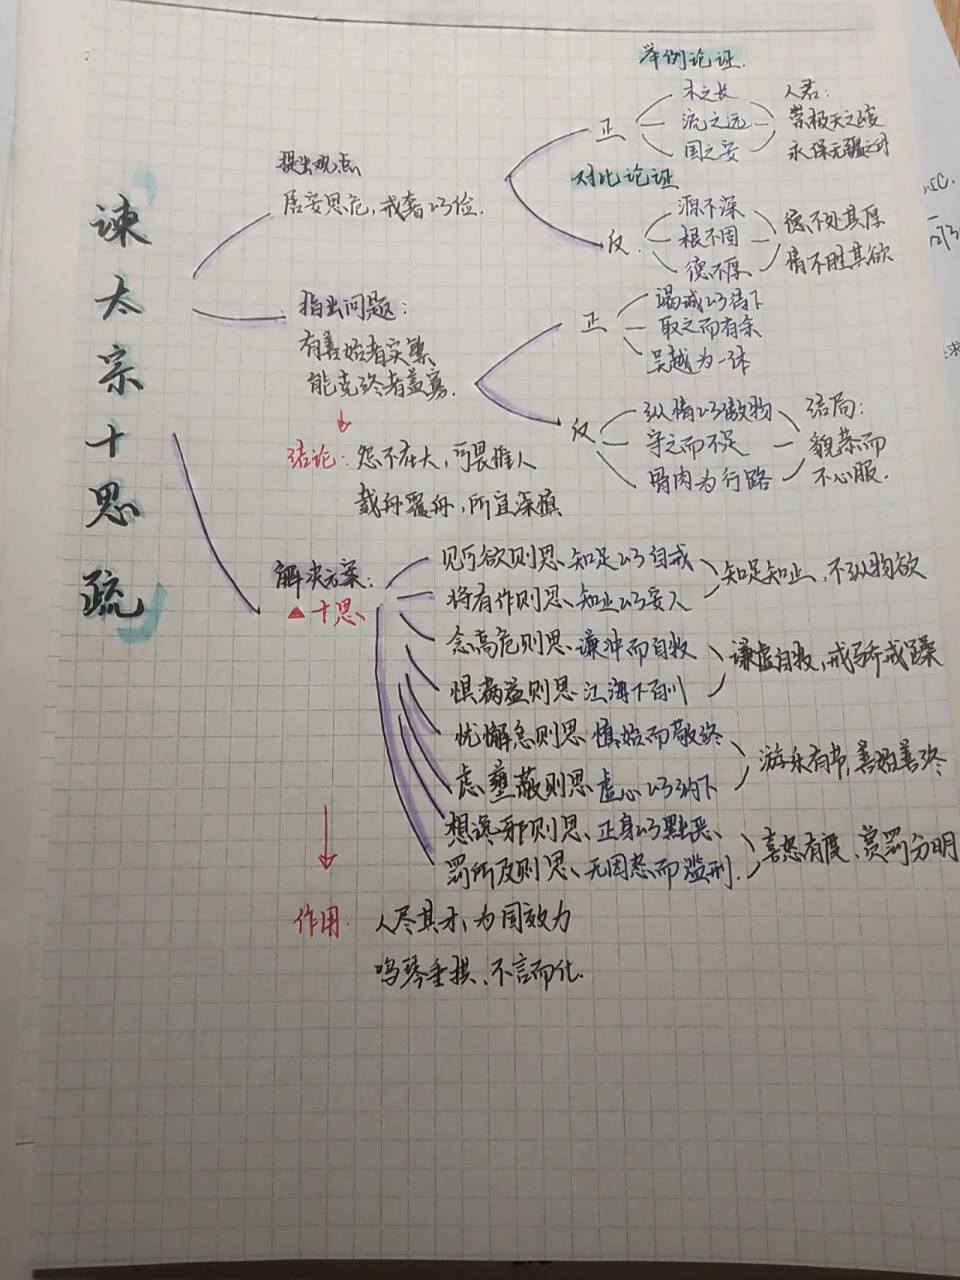 谏太宗十思疏
提出观点
居安思危,戒奢以俭.
举例论证.
正
木之长
流之远
国之安
人君:
崇极天之峻
永保无疆之休
对比论证
反.
源不深
根不固
德不厚
德不处其厚
情不胜其欲
指出问题:
有善始者实繁
能克终者盖寡.
正
竭诚以待下
取之而有余
吴越为一体
反
纵情以傲物
守之而不足
骨肉为行路
结局:
貌恭而
不心服.
结论: 怨不在大,可畏惟人
载舟覆舟,所宜深慎
解决方案:
▲十思
见可欲则思、知足以自戒
将有作则思、知止以安人
知足知止,不纵物欲
念高危则思、谦冲而自牧
惧满溢则思 江海下百川
谦虚自牧,戒骄戒躁
忧懈怠则思 慎始而敬终
虑壅蔽则思 虚心以纳下
游乐有节,善始善终
想谗邪则思、正身以黜恶、
罚所及则思、无因怒而滥刑.
喜怒有度、赏罚分明
作用: 人尽其才、为国效力
鸣琴垂拱、不言而化.